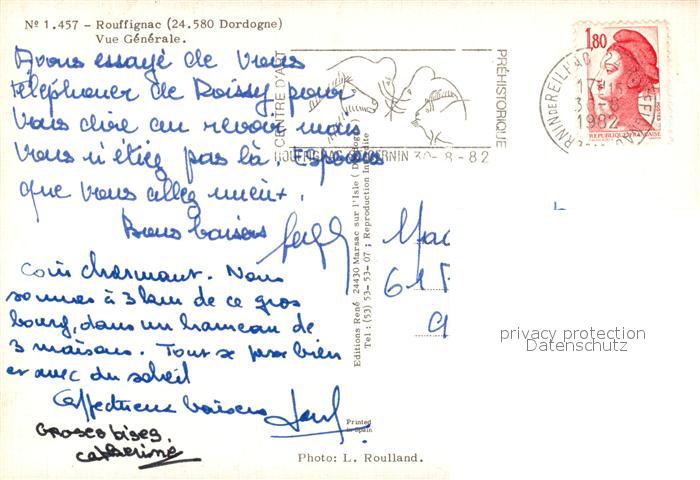 Nº 1.457 - Rouffignac (24.580 Dordogne)
Vue Générale.
Avons essayé de vous
téléphoner de Roissy pour
vous dire au revoir mais
vous n'étiez pas là. Espérons
que vous allez mieux.
Bons baisers
coin charmant. Nous
sommes à 3 km de ce gros
bourg, dans un hameau de
3 maisons. Tout se passe bien
et avec du soleil
affectueux baisers
Groses bises
Catherine
CENTRE D'ART
PRÉHISTORIQUE
ROUFFIGNAC ST CERNIN 30-8-82
1,80
REPUBLIQUE FRANÇAISE
30-8
1982
Editions René 24430 Marsac sur l'Isle (Dordogne)
Tel : (53) 53-53-07 ; Reproduction Interdite
Printed
in Spain
Photo: L. Roulland.
privacy protection
Datenschutz